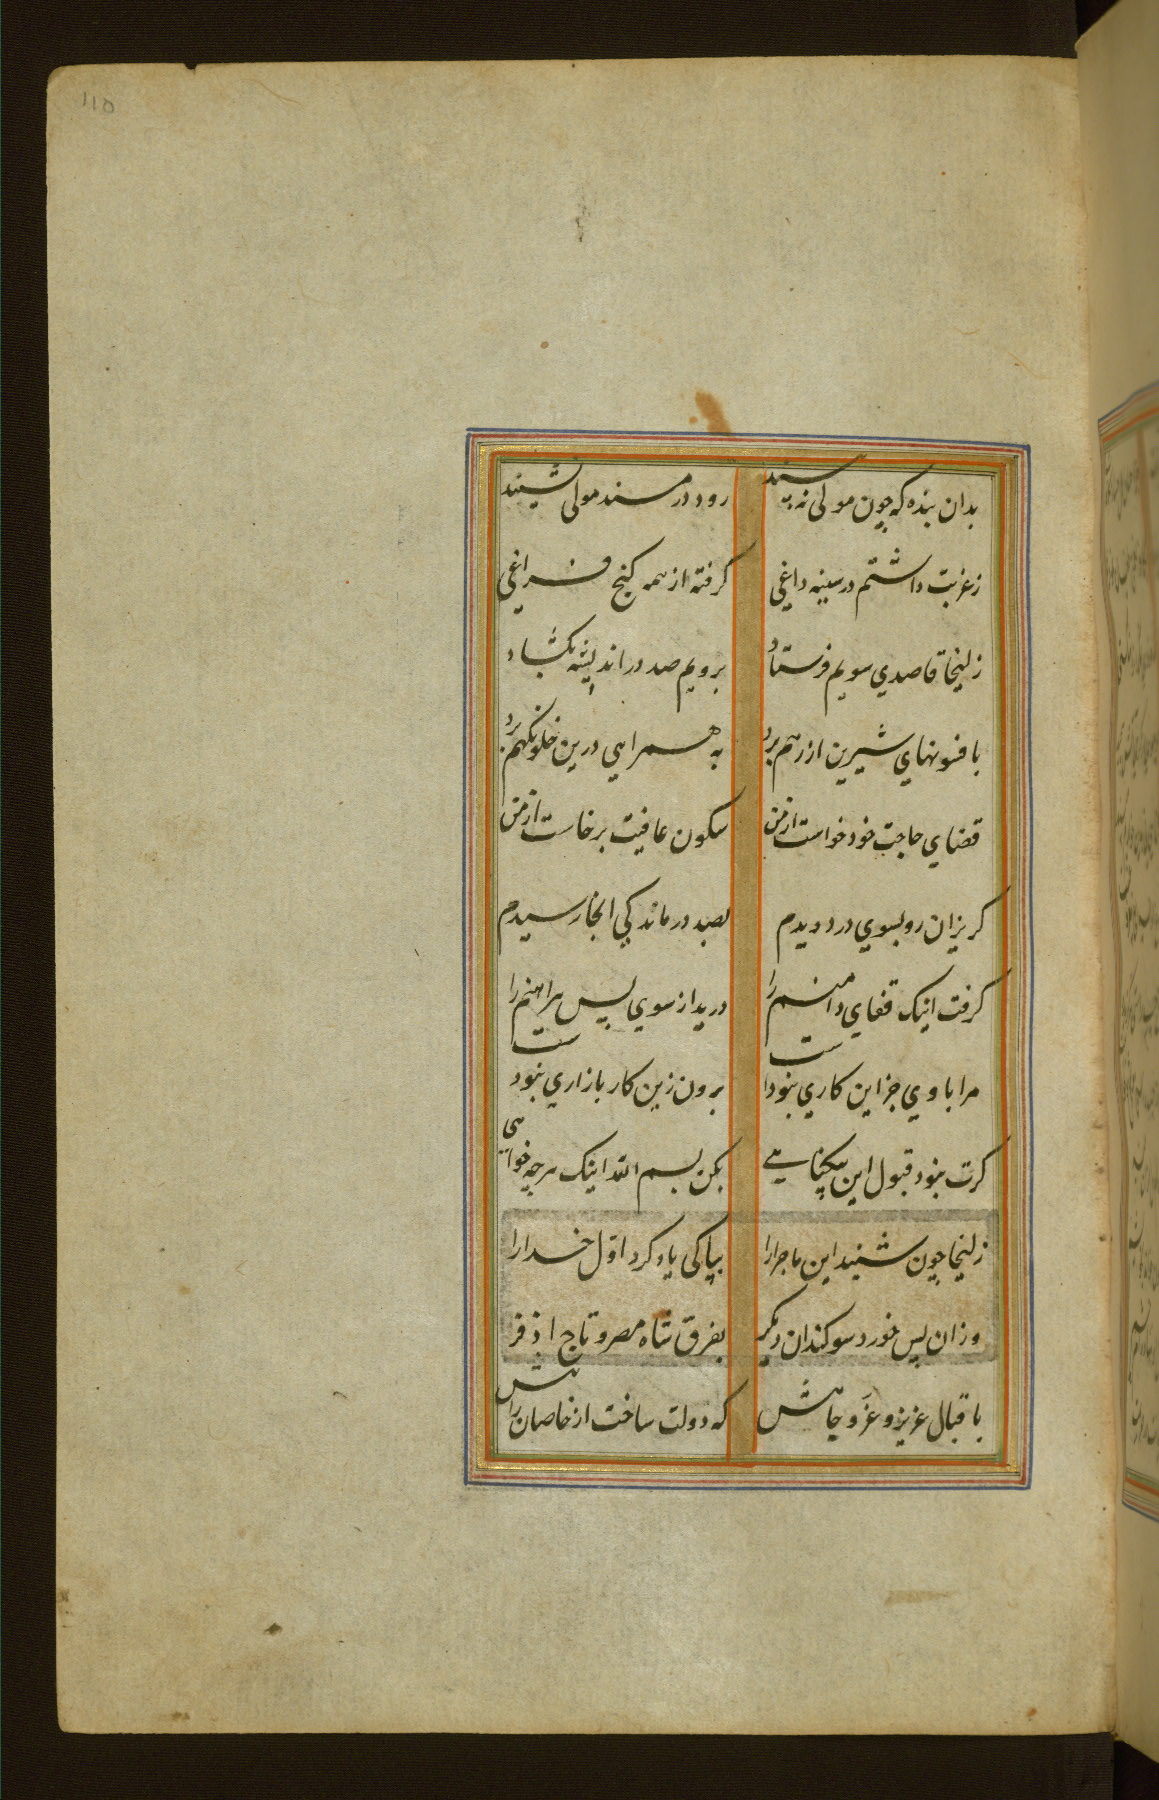 110
بدان بنده که چون مولی نه بیند رود در مسند مولی نشیند
ز غربت داشتم در سینه داغی گرفته از همه کنج فراغی
زلیخا قاصدی سویم فرستاد برویم صد در اندیشه بکشاد
بافسونهای شیرین از رهم برد به همراهی درین خلوتگهم برد
قضای حاجت خود خواست از من سکون عافیت برخاست از من
گریزان رو بسوی در دویدم بصد درماندگی اینجا رسیدم
گرفت اینک قفای دامنم را درید از سوی پس پیراهنم را
مرا با وی جز این کاری نبودست برون زین کار بازاری نبودست
گرت نبود قبول این بیگناهی بکن بسم الله اینک هرچه خواهی
زلیخا چون شنید این ماجرا را بپاکی یاد کرد اول خدا را
وزان پس خورد سوکندان دیگر بفرق شاه مصر و تاج افسر
باقبال عزیز و عز و جاهش که دولت ساخت از خاصان شاهش